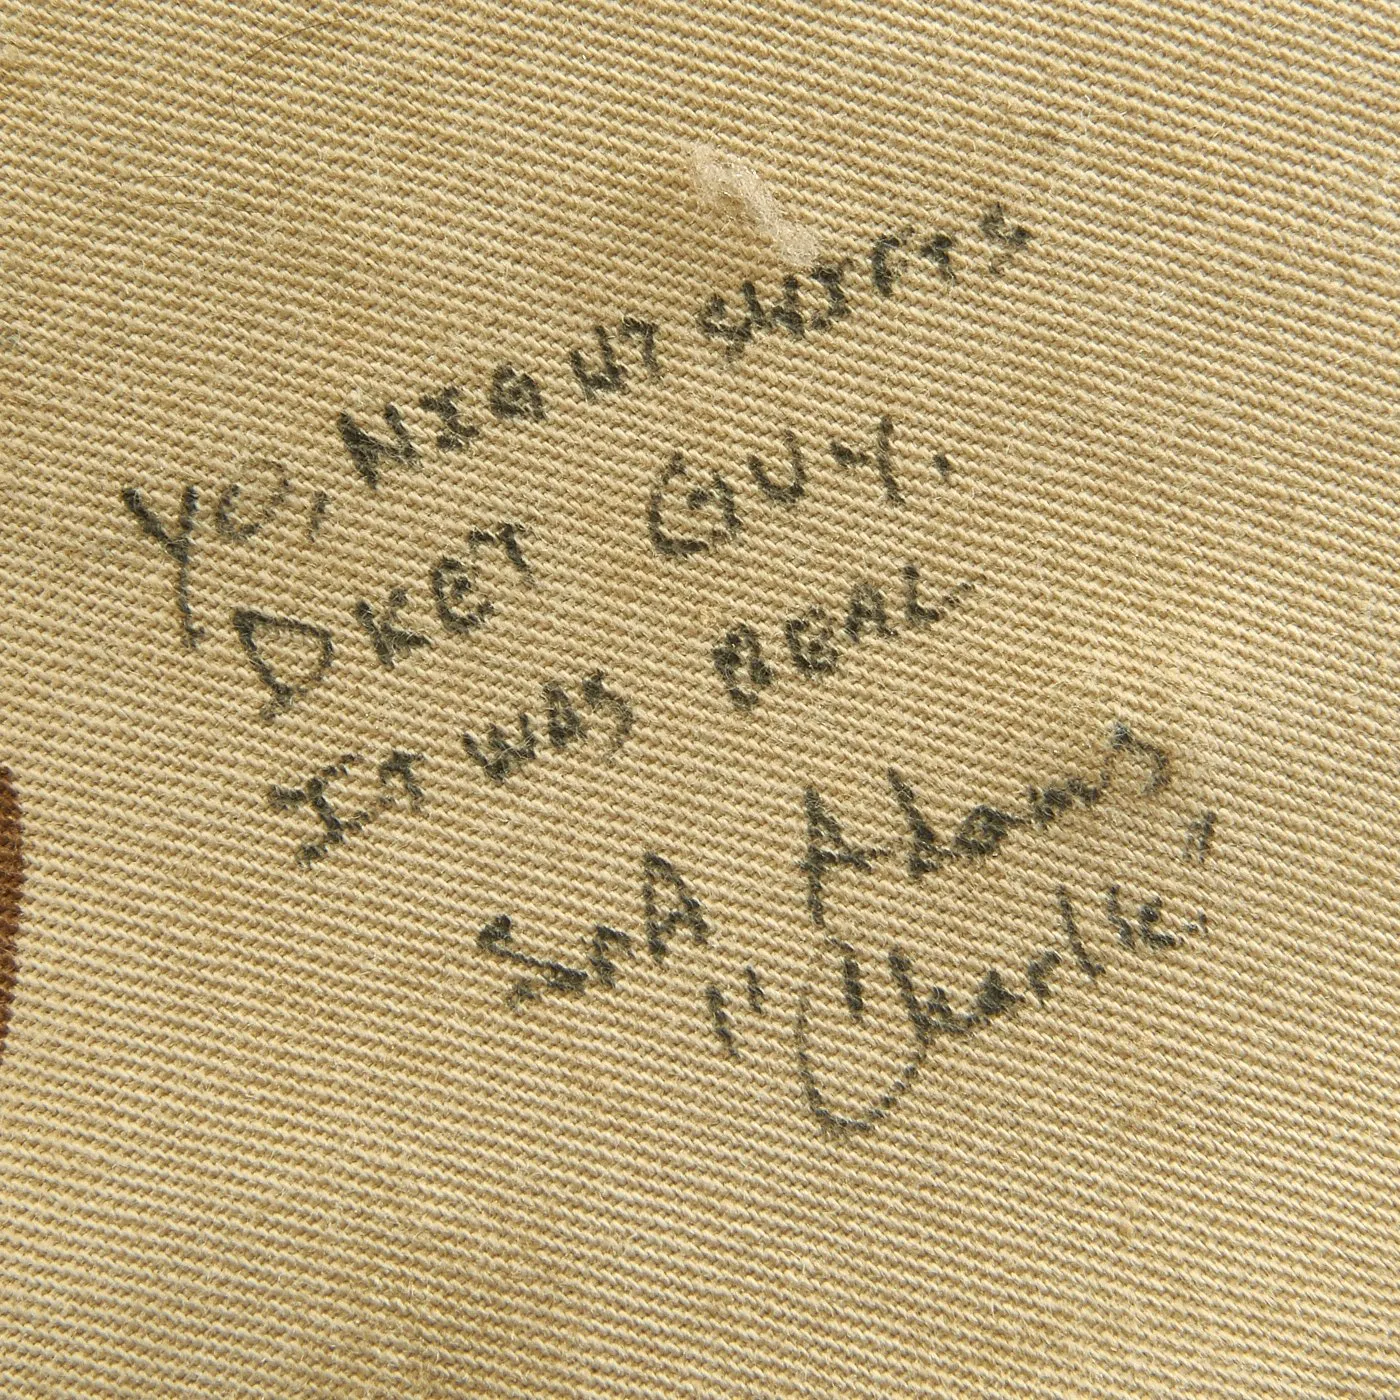 YO, NIGHT SHIFTS
DKET GUY.
IT WAS REAL.
SrA Adams
"Charlie"